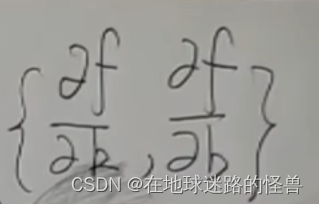 {∂f/∂k, ∂f/∂b}
CSDN @在地球迷路的怪兽